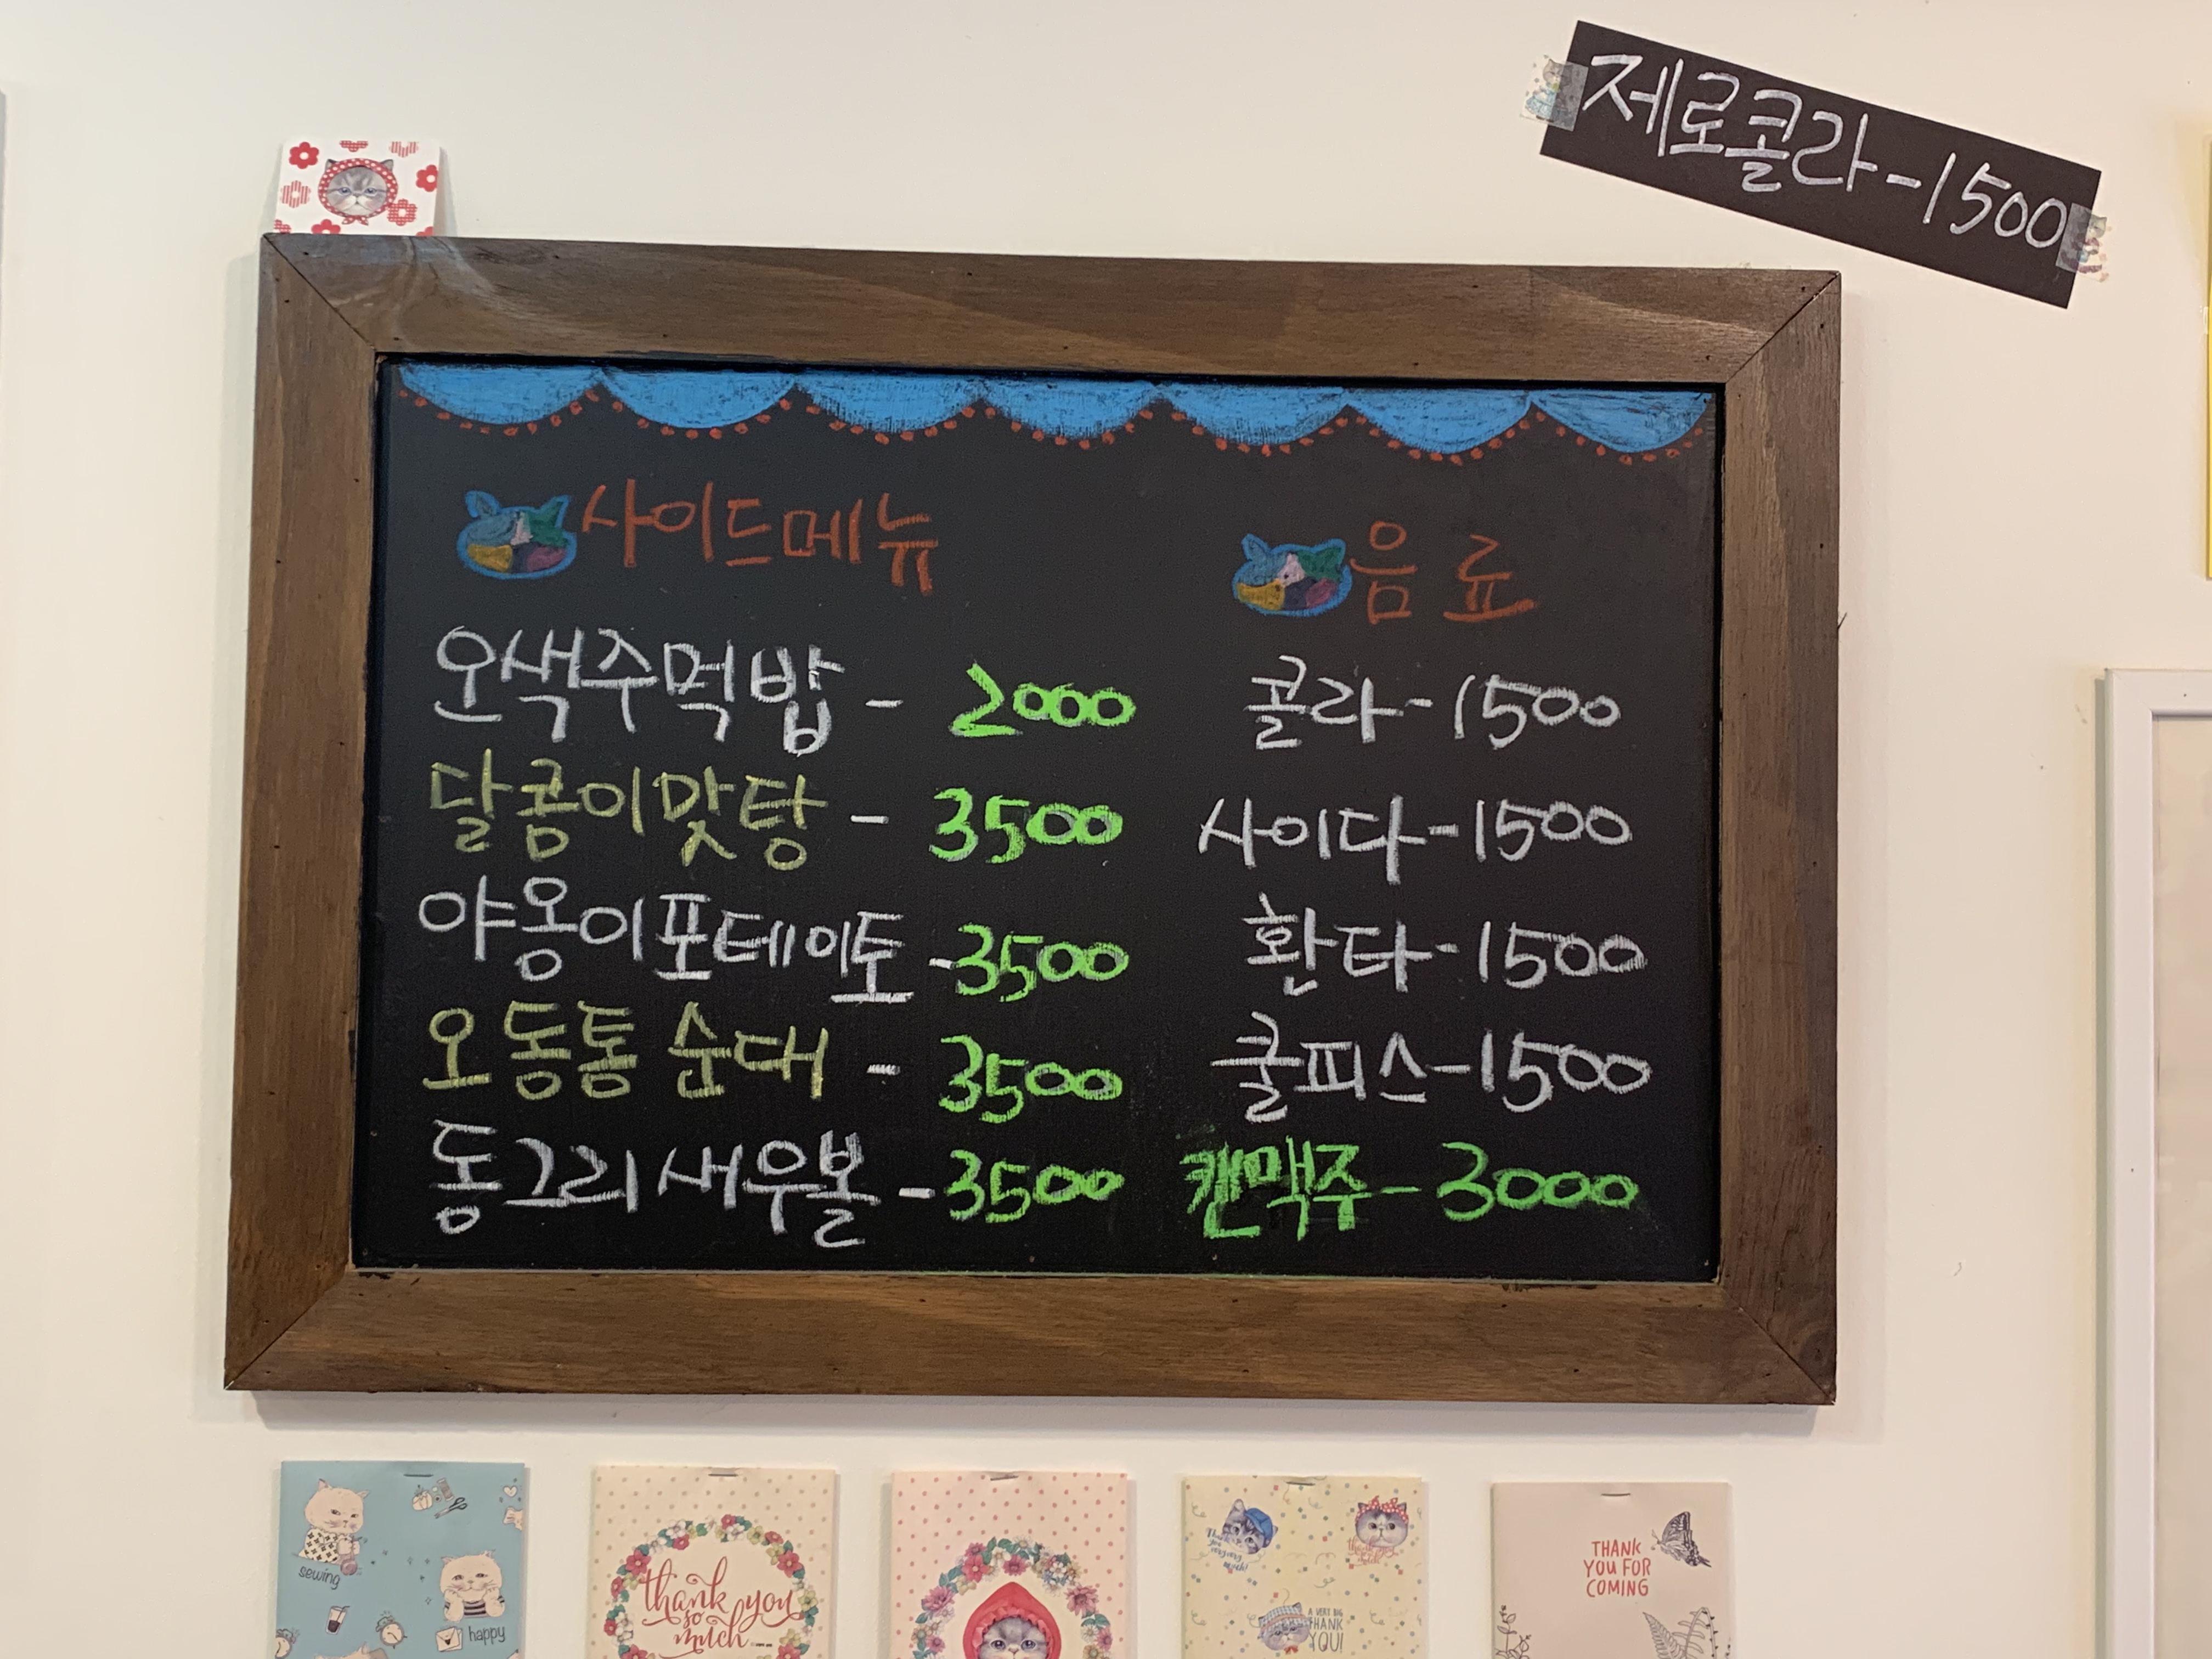 제로콜라-1500
사이드메뉴
오색주먹밥 - 2000
달콤이맛탕 - 3500
야옹이포테이토 -3500
오동통 순대 - 3500
동그리새우볼 -3500
음료
콜라-1500
사이다-1500
환타-1500
쿨피스-1500
캔맥주-3000
sewing
happy
thank you
so
much
A VERY BIG
THANK
YOU!
THANK
YOU FOR
COMING